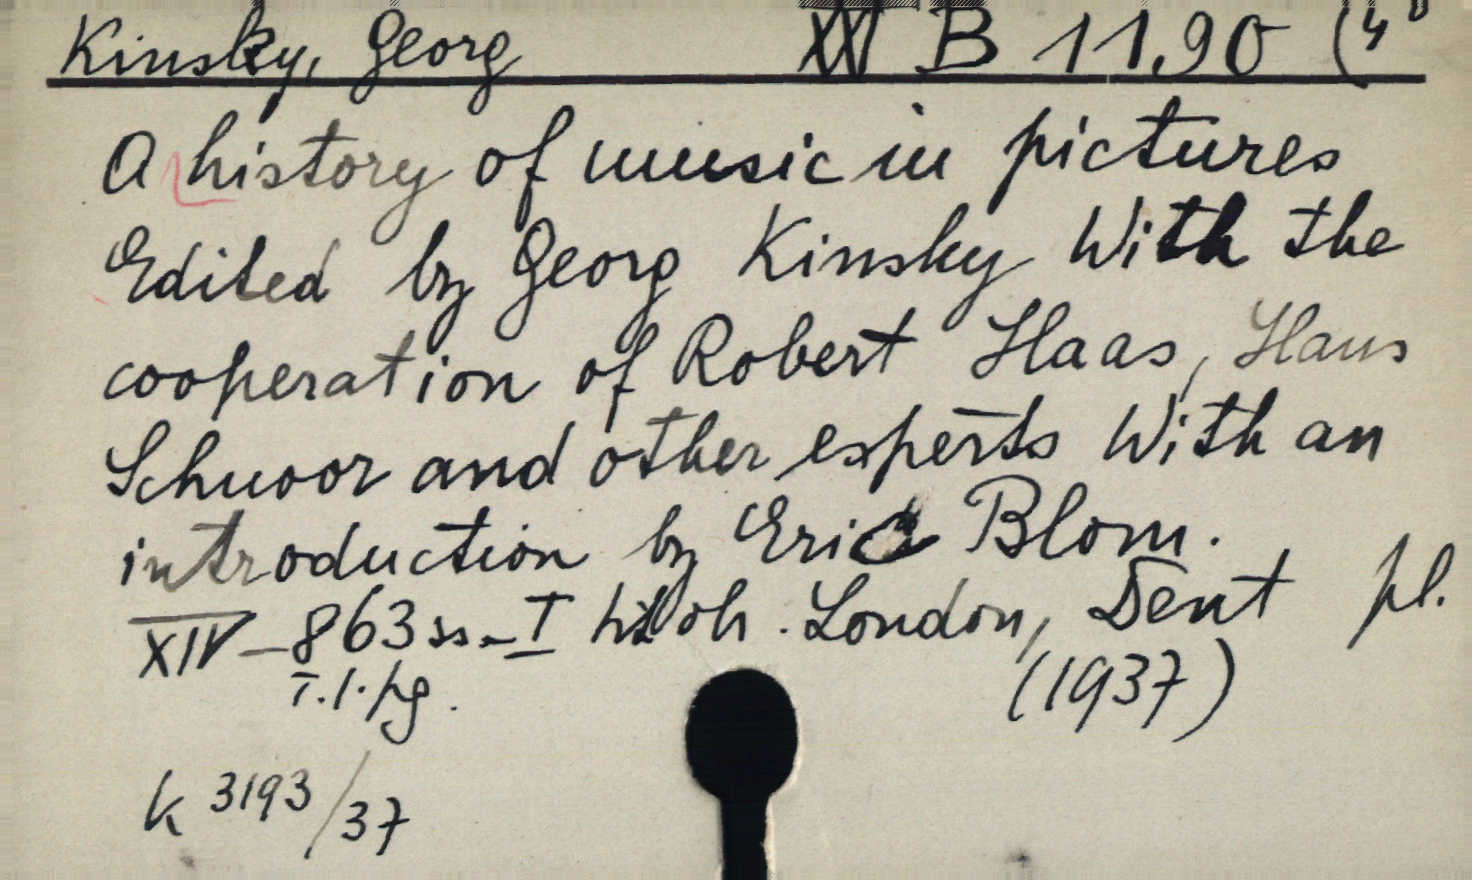 Kinsky, Georg XXI B 11,90 (4°
A history of music in pictures
Edited by Georg Kinsky With the
cooperation of Robert Haas, Hans
Schnoor and other experts With an
introduction by Eric Blom.
XIV-863 ss. - I London, Dent pl.
T.1.pg. (1937)
K 3193/37